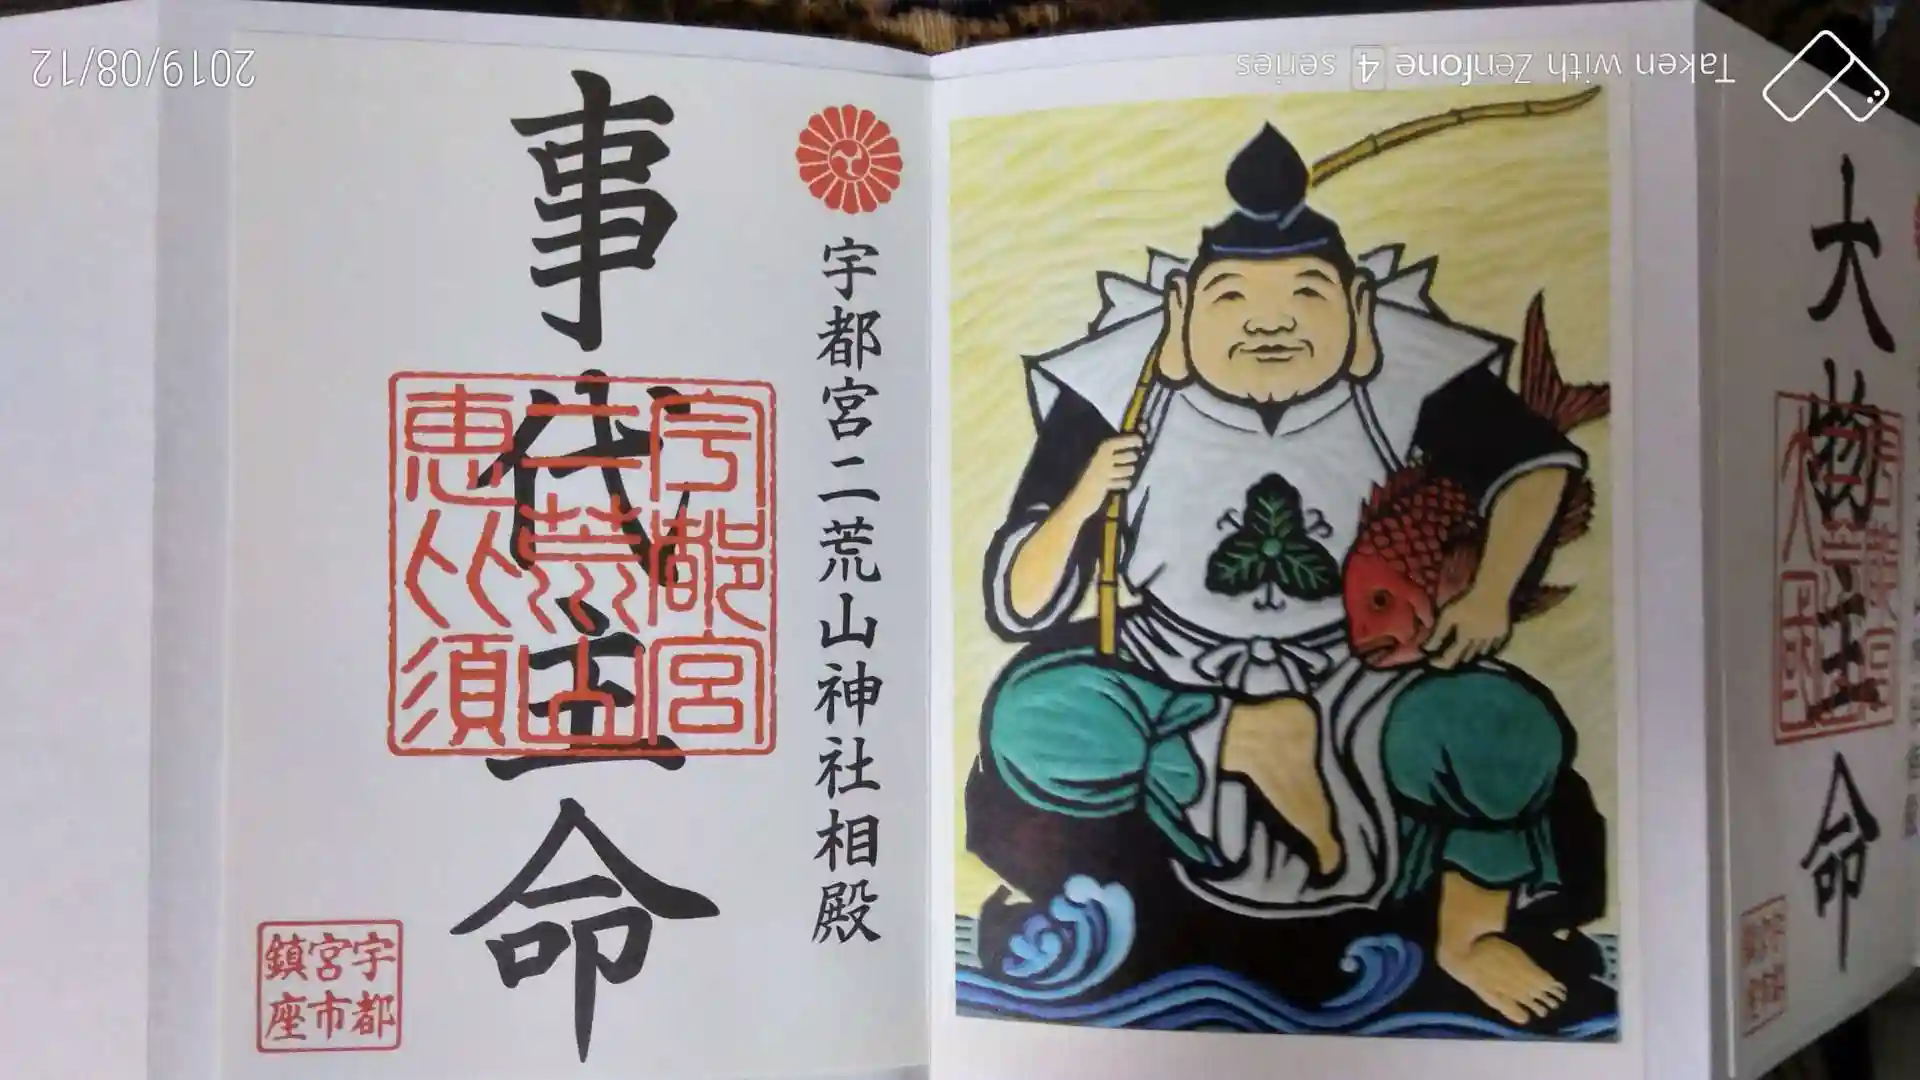 宇都宮二荒山神社相殿
事代主命
宇都宮
二荒山
恵比須
宇都
宮市
鎮座
大物主命
2019/08/12
Taken with Zenfone 4 series